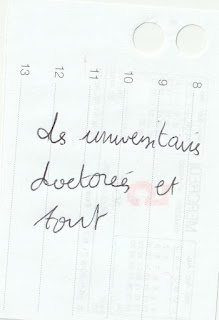 8
9
10
11
12
13
ds universitaris
doctorés et
tout